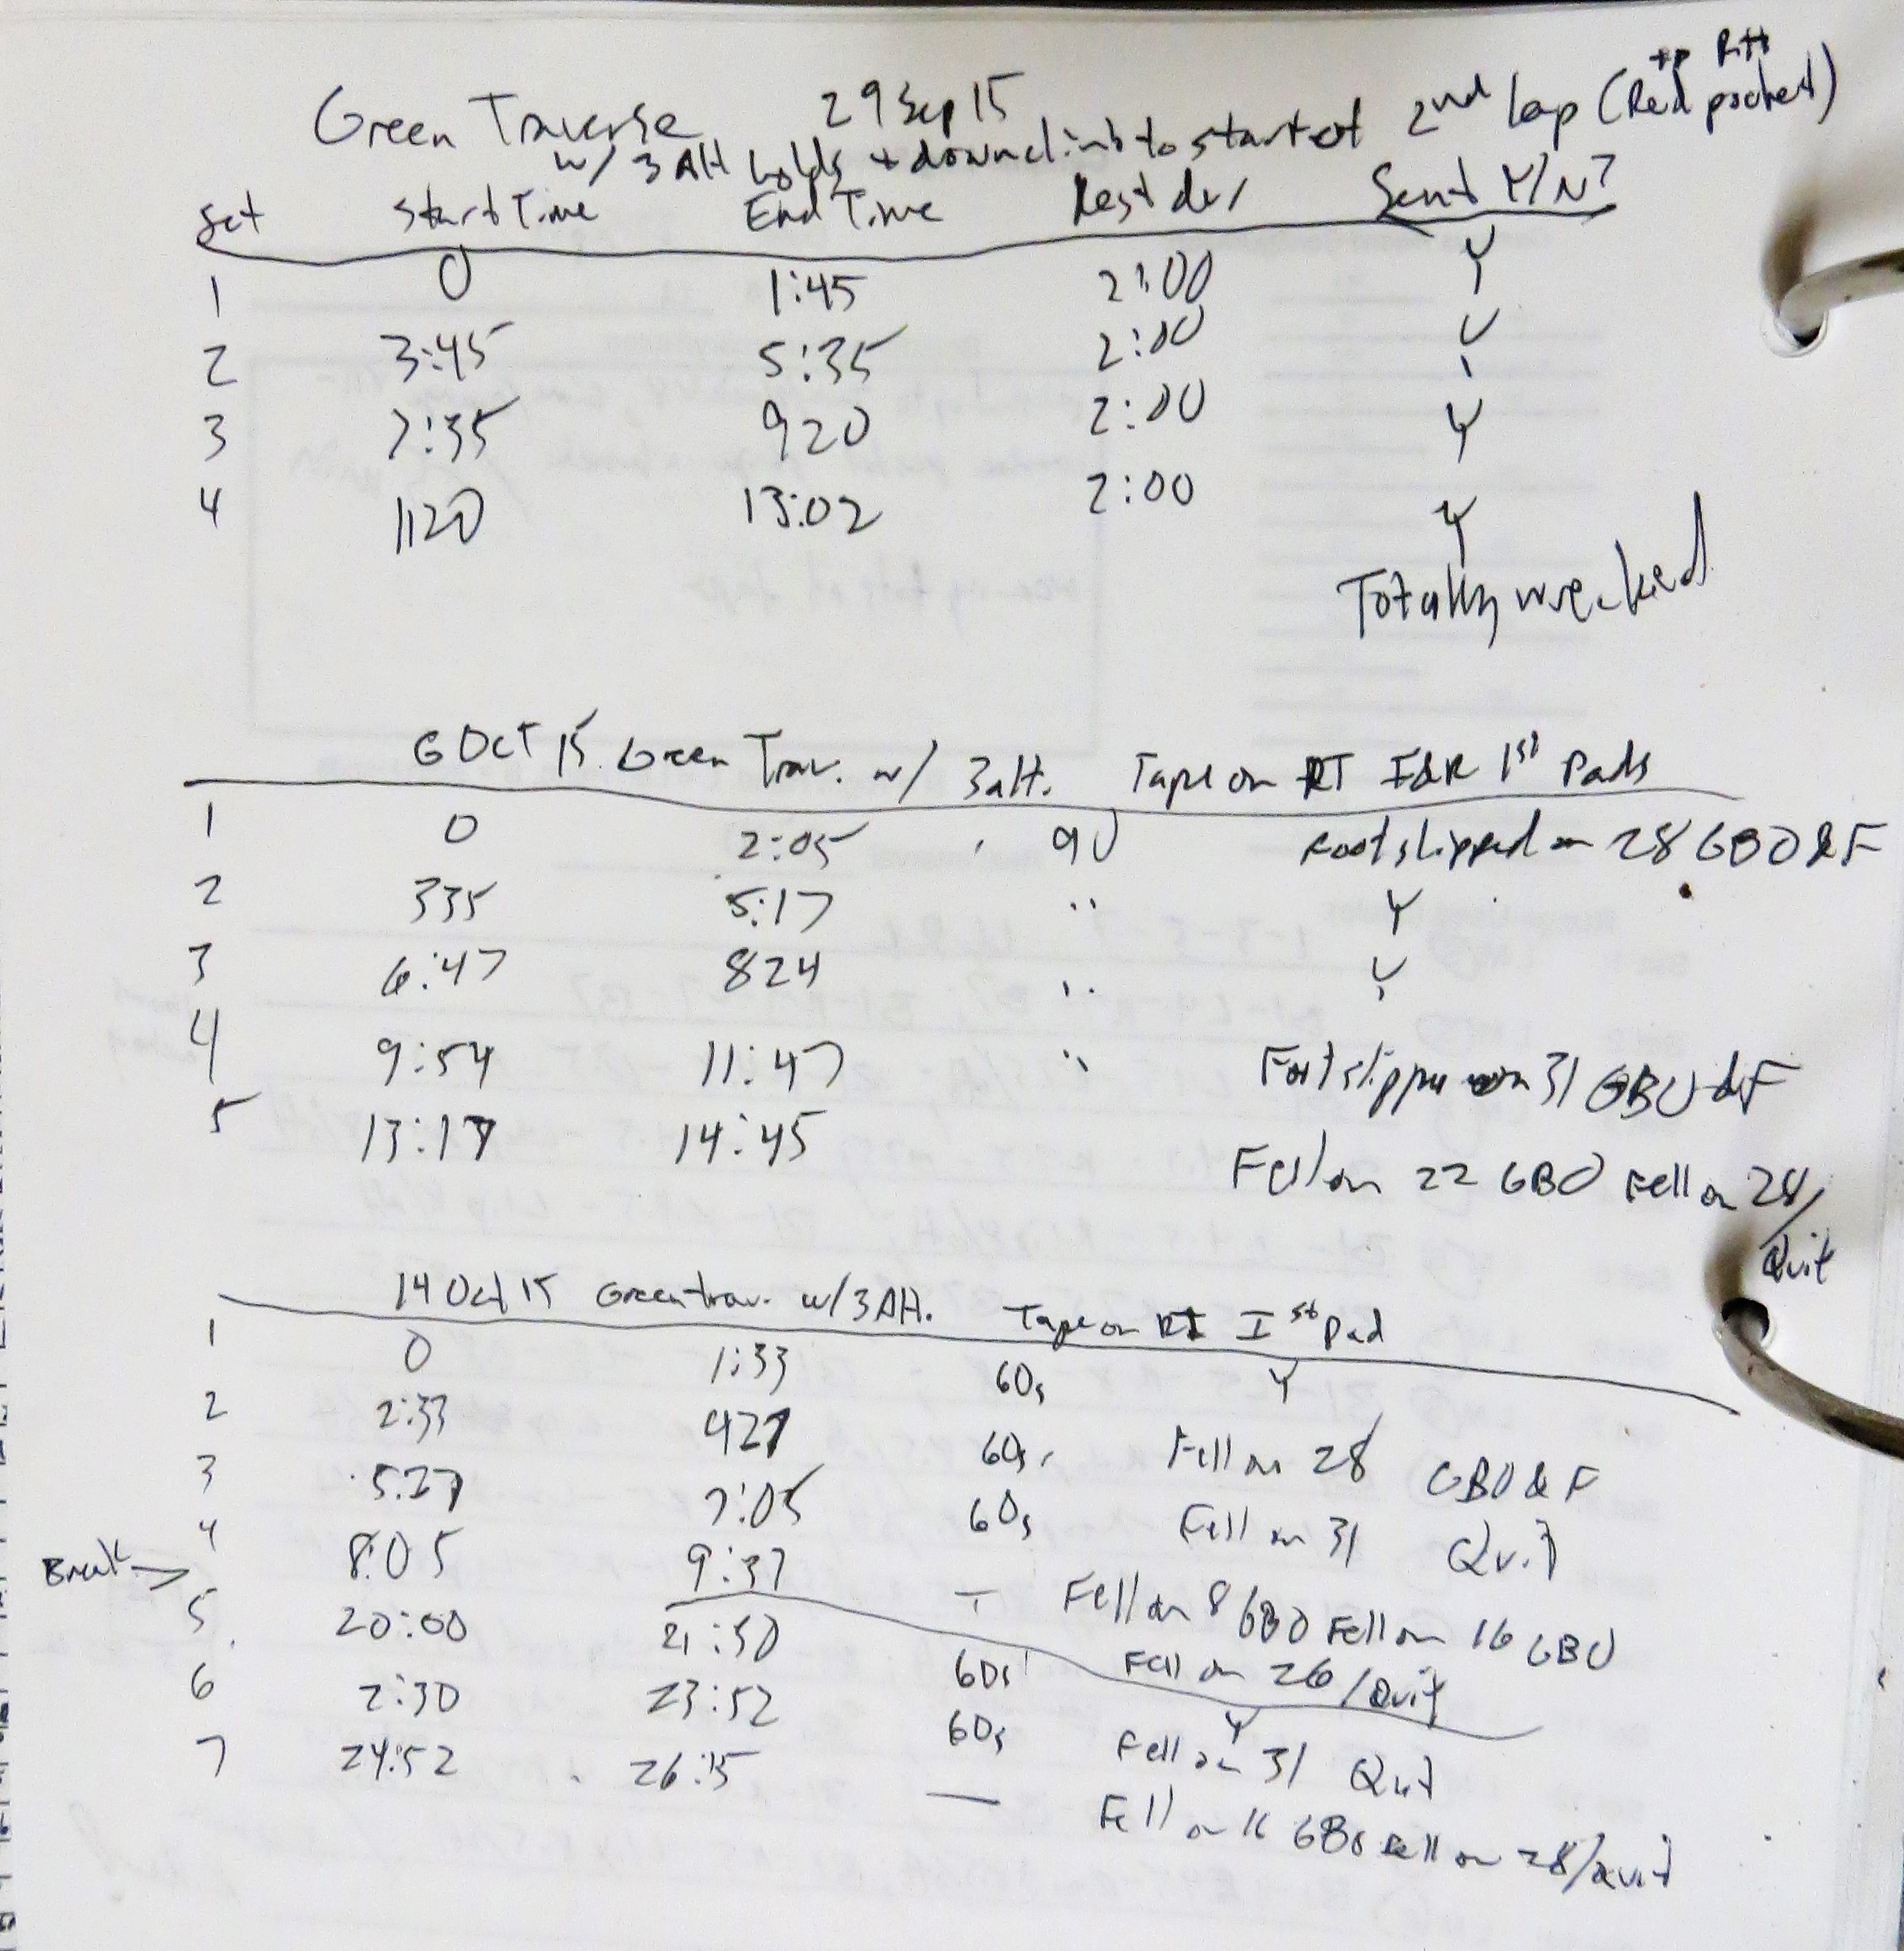 Green Traverse 29 Sep 15
w/ 3 AH holds + downclimb to start of 2nd lap (Red pocket)
Set Start Time End Time Rest dur Sent Y/N?
1 0 1:45 2:00 Y
2 3:45 5:35 2:00 Y
3 7:35 920 2:00 Y
4 1120 13:02 2:00 Y
Totally wrecked
6 Oct 15 Green Trav. w/ 3 alt. Tape on RT I&R 1st Pads
1 0 2:05 90 Foot slipped on 28 GBO & F
2 335 5:17 " Y
3 6:47 824 " Y
4 9:54 11:47 " Foot slipped on 31 GBO & F
5 13:17 14:45 Fell on 22 GBO Fell on 28/
Quit
14 Oct 15 Green trav. w/ 3 AH. Tape on RT I 1st Pad
1 0 1:33 60s Y
2 2:33 427 60s Fell on 28 GBO & F
3 5:27 7:05 60s Fell on 31 Quit
4 8:05 9:37 — Fell on 8 GBO Fell on 16 GBO
Break → Fell on 26/Quit
5 20:00 21:30 60s Y
6 2:30 23:52 60s Fell on 31 Quit
7 24:52 26:15 — Fell on 16 GBO Fell on 28/Quit